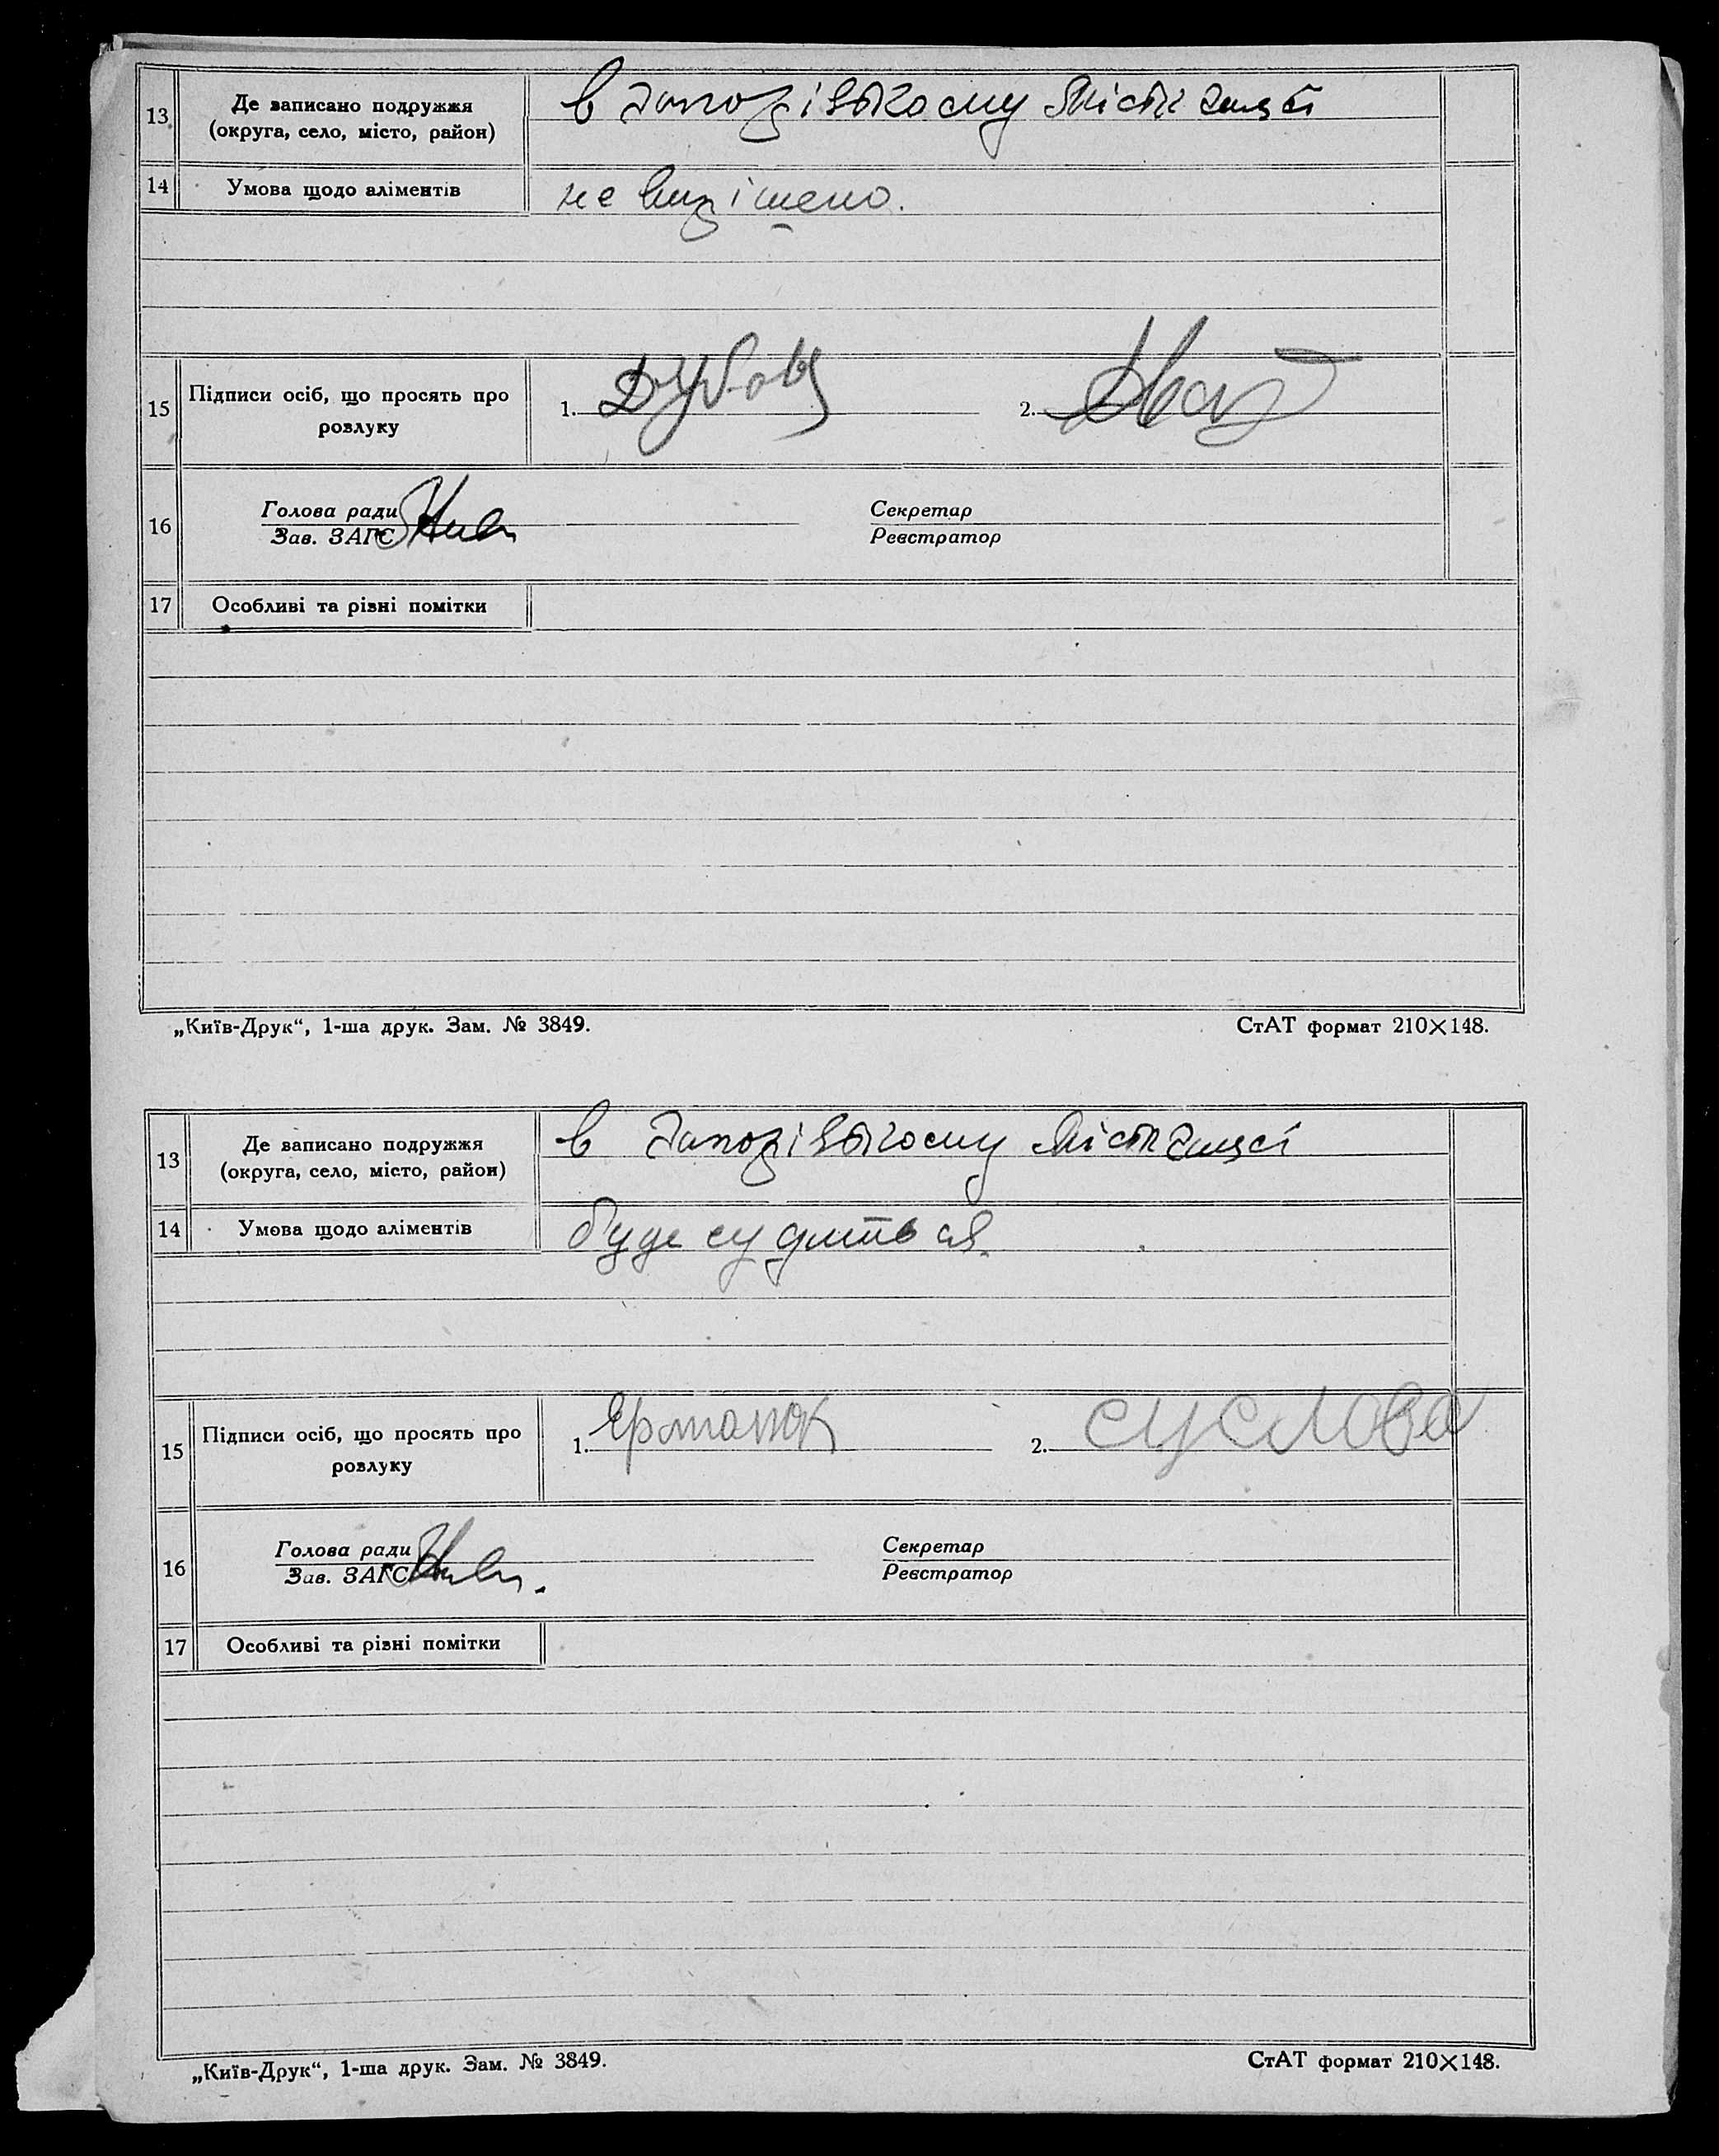 13
Де записано подружжя
(округа, село, місто, район)
в Запорізькому Міськ Загсі
14
Умова щодо аліментів
не вирішено.
15
Підписи осіб, що просять про
розлуку
1.
2.
16
Голова ради
Зав. ЗАГС
Секретар
Реєстратор
17
Особливі та різні помітки
„Київ-Друк“, 1-ша друк. Зам. № 3849.
СтАТ формат 210×148.
13
Де записано подружжя
(округа, село, місто, район)
в Запорізькому Міськ Загсі
14
Умова щодо аліментів
буде судиться.
15
Підписи осіб, що просять про
розлуку
1.
2. Суслова
16
Голова ради
Зав. ЗАГС
Секретар
Реєстратор
17
Особливі та різні помітки
„Київ-Друк“, 1-ша друк. Зам. № 3849.
СтАТ формат 210×148.